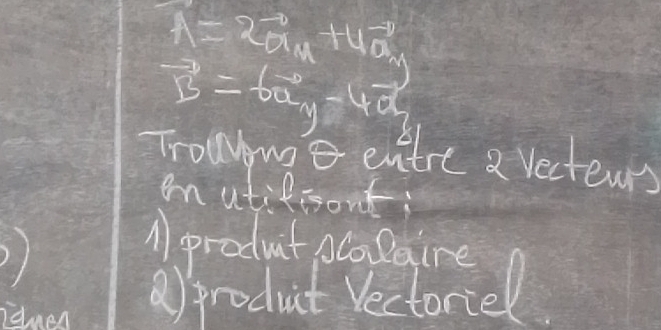 A⃗ = 2a⃗ₓ + 4a⃗y
B⃗ = 6a⃗y - 4a⃗z
Trouvons θ entre 2 Vecteurs
en utilisont :
1) produit scalaire
2) produit Vectoriel.